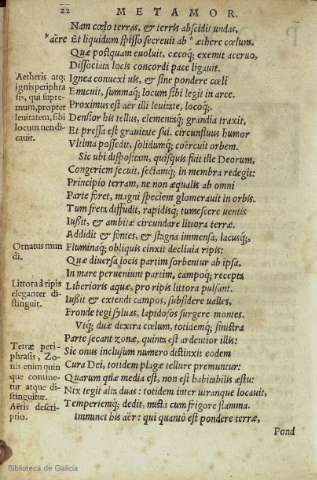 22 METAMOR.
Nam cœlo terras, & terris abscidit undas,
*aëre Et liquidum spisso secreuit ab * æthere cœlum.
Quæ postquam euoluit, cæcoq; exemit aceruo,
Dissociata locis concordi pace ligauit.
Aetheris atq; ignis periphrasis, qui supremum, propter leuitatem, sibi locum uendicauit.
Ignea conuexi uis, & sine pondere cœli
Emicuit, summaq; locum sibi legit in arce.
Proximus est aër illi leuitate, locoq;.
Densior his tellus, elementaq; grandia traxit,
Et pressa est grauitate sui. circunfluus humor
Vltima possedit, solidumq; coërcuit orbem.
Sic ubi dispositam, quisquis fuit ille Deorum,
Congeriem secuit, sectamq; in membra redegit:
Principio terram, ne non æqualis ab omni
Parte foret, magni speciem glomerauit in orbis.
Tum freta diffudit, rapidisq; tumescere uentis
Iussit, & ambitæ circundare littora terræ.
Addidit & fontes, & stagna immensa, lacusq;,
Ornatus mundi.
Fluminaq; obliquis cinxit decliuia ripis:
Quæ diuersa locis partim sorbentur ab ipsa.
In mare perueniunt partim, campoq; recepta
Littora à ripis eleganter distinguit.
Liberioris aquæ, pro ripis littora pulsant.
Iussit & extendi campos, subsidere ualles,
Fronde tegi syluas, lapidosos surgere montes.
Vtq; duæ dextera cœlum, totidemq; sinistra
Parte secant zonæ, quinta est ardentior illis:
Terræ periphrasis, Zonis enim quinque continetur atque distinguitur.
Sic onus inclusum numero distinxit eodem
Cura Dei, totidem plagæ tellure premuntur:
Quarum quæ media est, non est habitabilis æstu:
Nix tegit alta duas: totidem inter utranque locauit,
Aëris descriptio.
Temperiemq; dedit, mista cum frigore flamma.
Imminet his aër: qui quantò est pondere terræ,
Pond
Biblioteca de Galicia